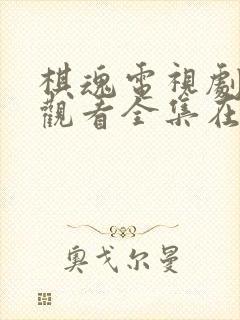 棋魂電視劇
觀看全集在
奧戈尔曼